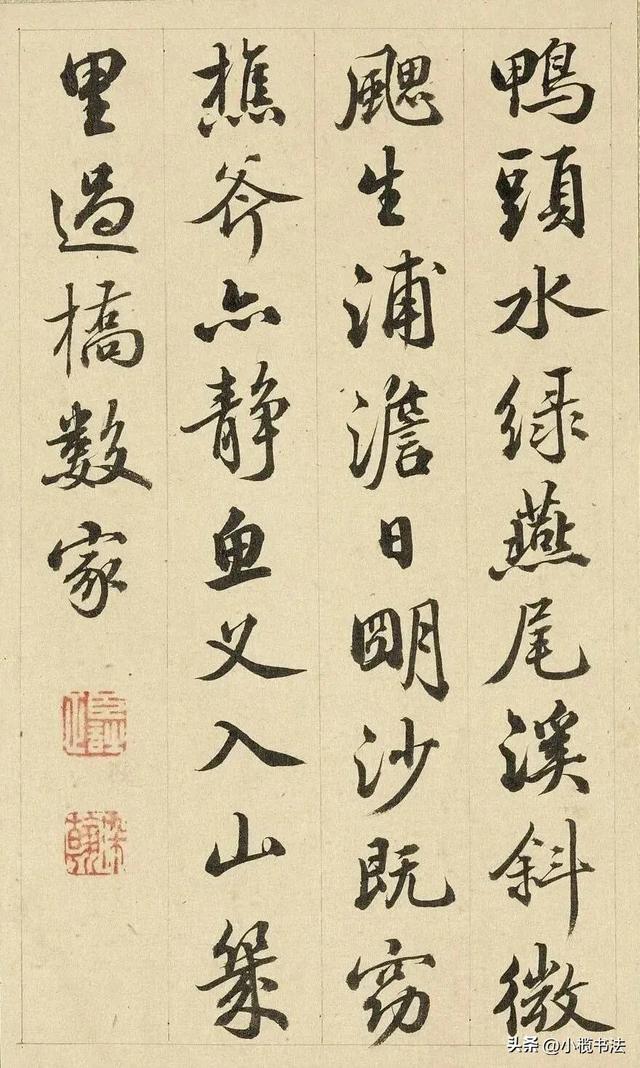 鴨頭水緑燕尾溪斜微
颸生浦澹日明沙既窈
樵斧亦静魚叉入山幾
里過橋數家
头条 @小榄书法